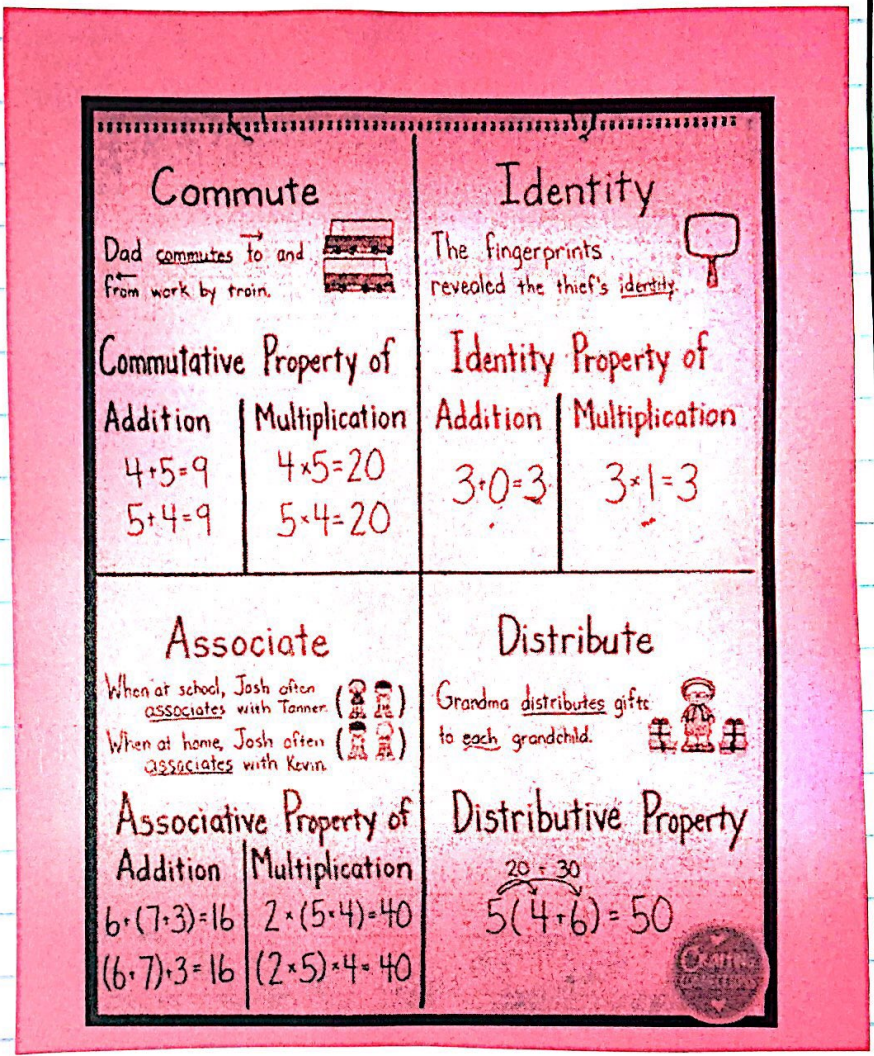 Commute
Dad commutes to and
from work by train.
Commutative Property of
Addition
4+5=9
5+4=9
Multiplication
4×5=20
5×4=20
Identity
The fingerprints
revealed the thief's identity.
Identity Property of
Addition
3+0=3
Multiplication
3×1=3
Associate
When at school, Josh often
associates with Tanner.
When at home, Josh often
associates with Kevin.
Associative Property of
Addition
6+(7+3)=16
(6+7)+3=16
Multiplication
2×(5×4)=40
(2×5)×4=40
Distribute
Grandma distributes gifts
to each grandchild.
Distributive Property
20 + 30
5(4+6)=50
Crafting